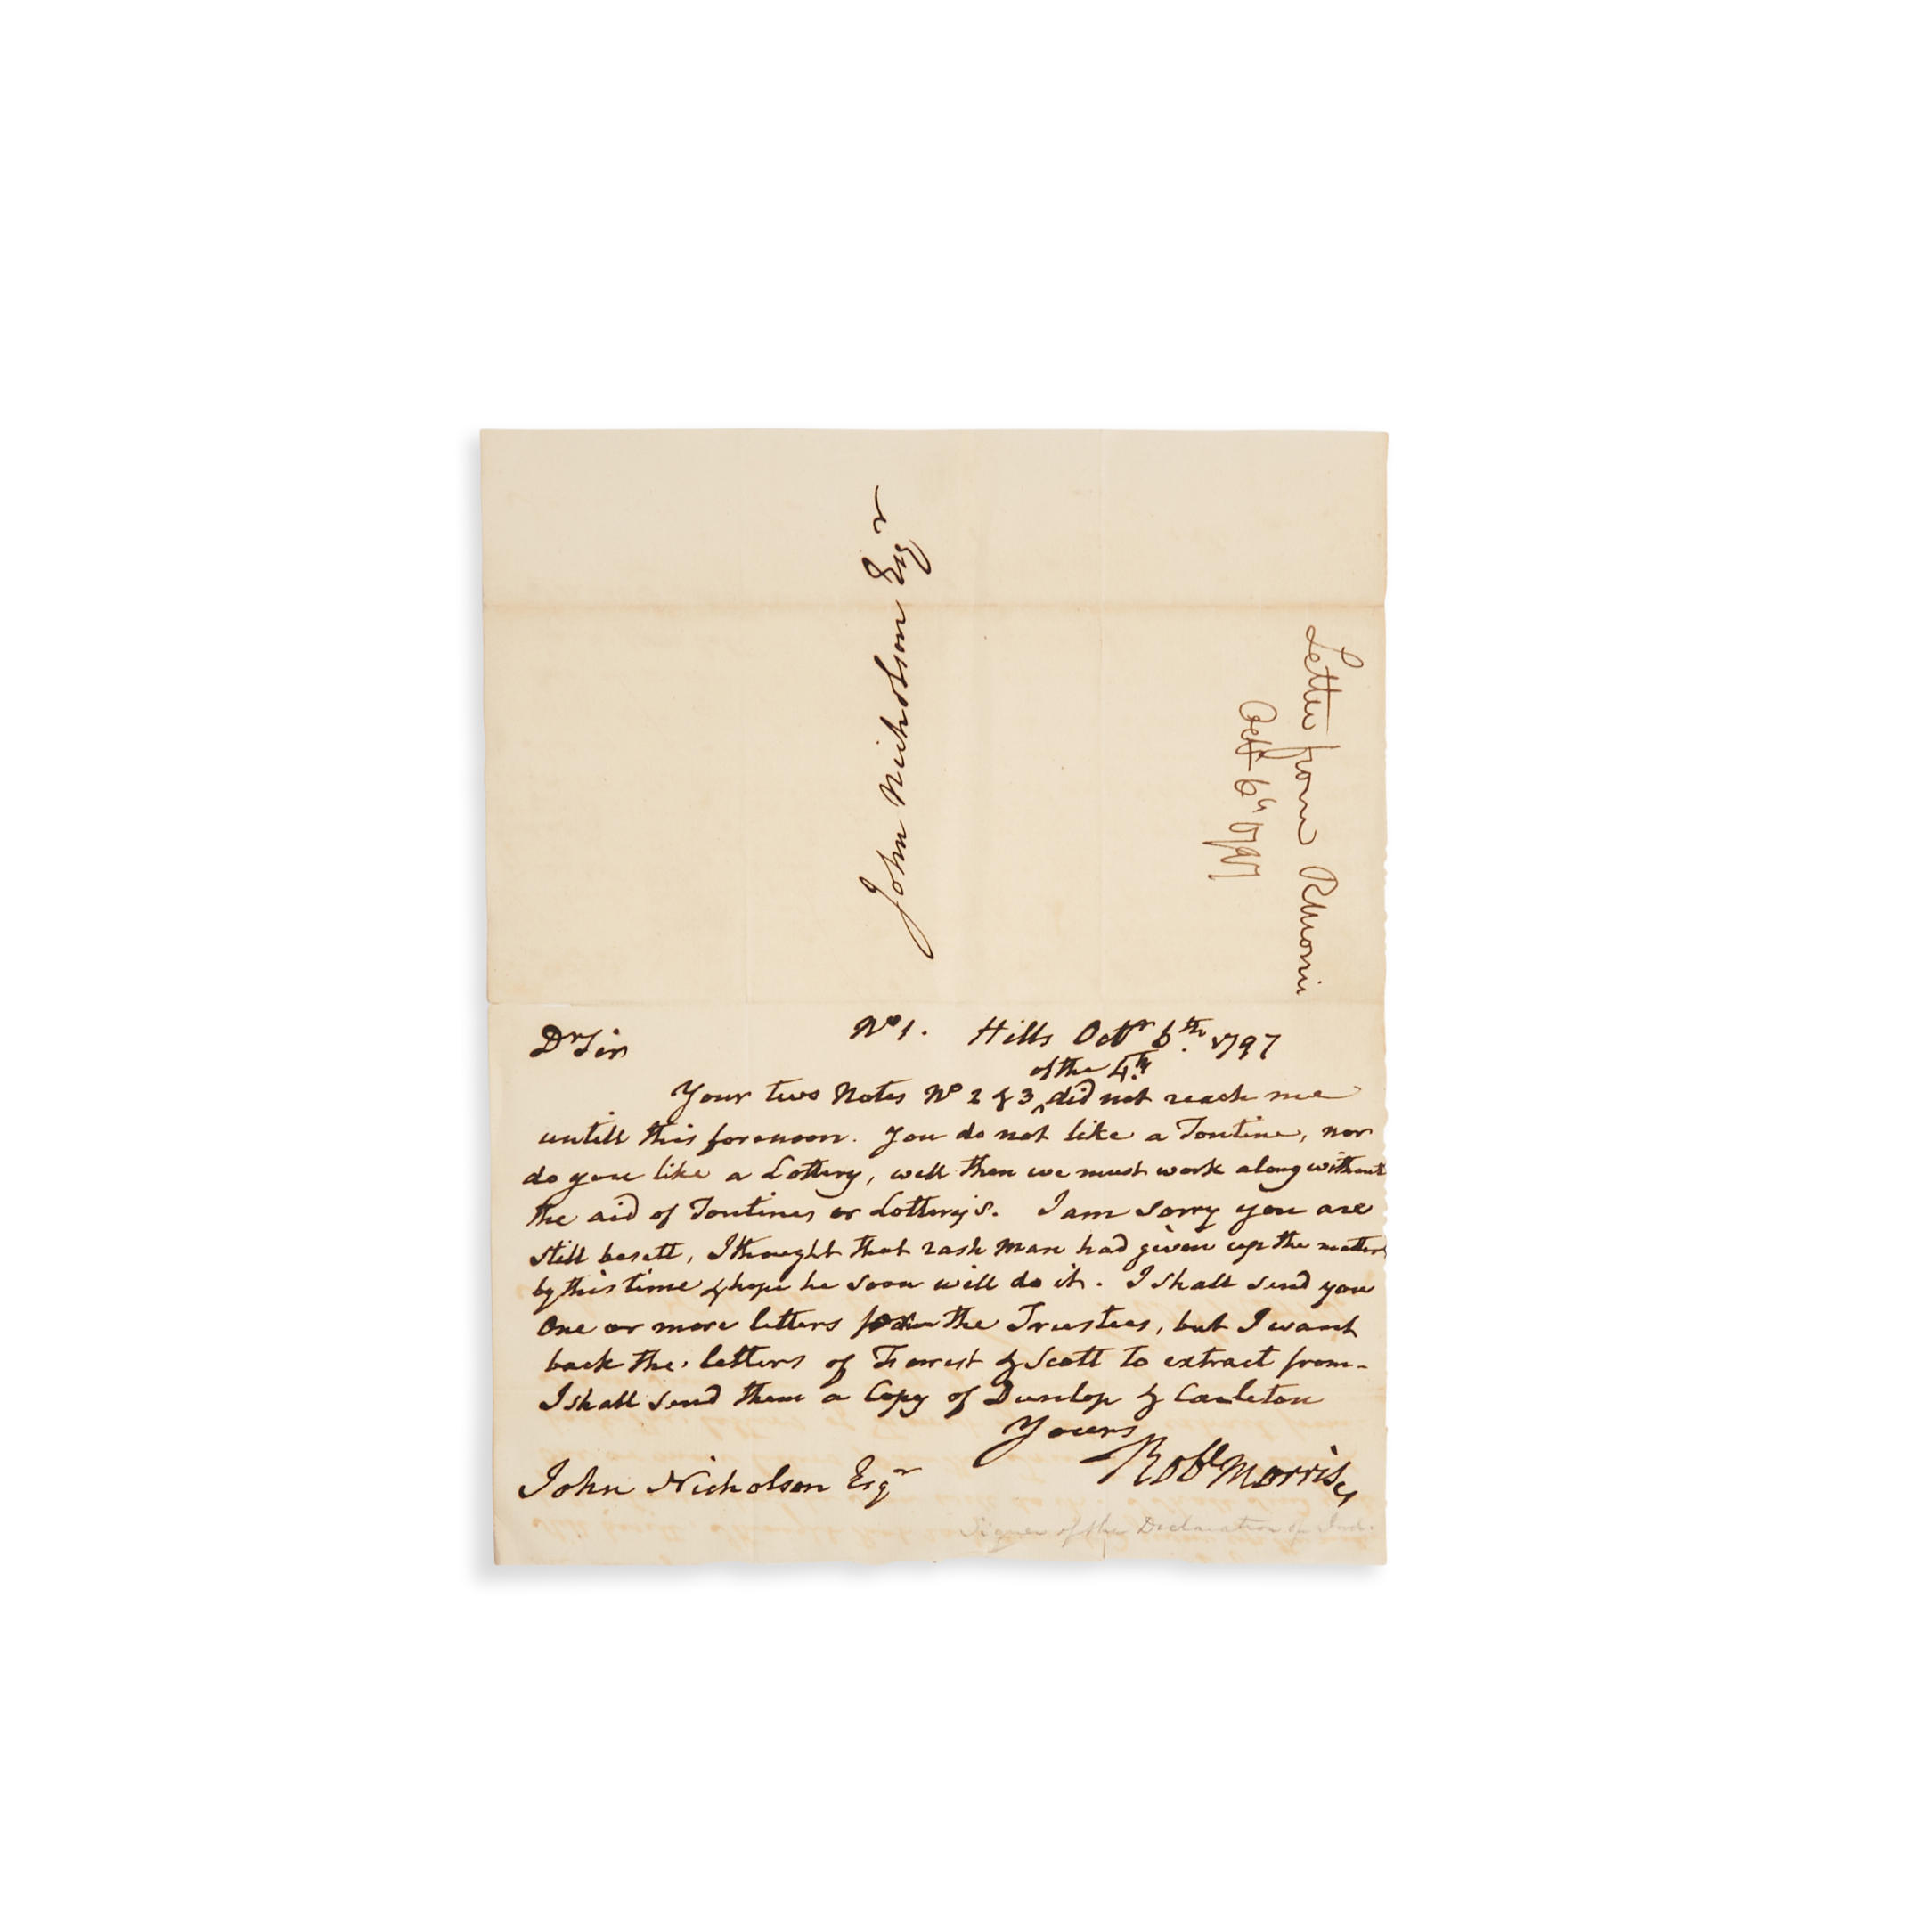 John Nicholson Esqr
Letter from RMorris
Octr 6th 1797
Dr Sir
No 1. Hills Octr 6th 1797
of the 4th
Your two Notes No 2 & 3 ^ did not reach me
untill this forenoon. You do not like a Tontine, nor
do you like a Lottery, well then we must work along without
the aid of Tontines or Lottery's. I am sorry you are
still besett, I thought that rash man had given up the matter
by this time & hope he soon will do it. I shall send you
One or more letters for the Trustees, but I want
back the letters of Forrest & Scott to extract from-
I shall send them a Copy of Dunlop & Carleton
Yours
Robt Morris
John Nicholson Esqr
Signer of the Declaration of Ind.